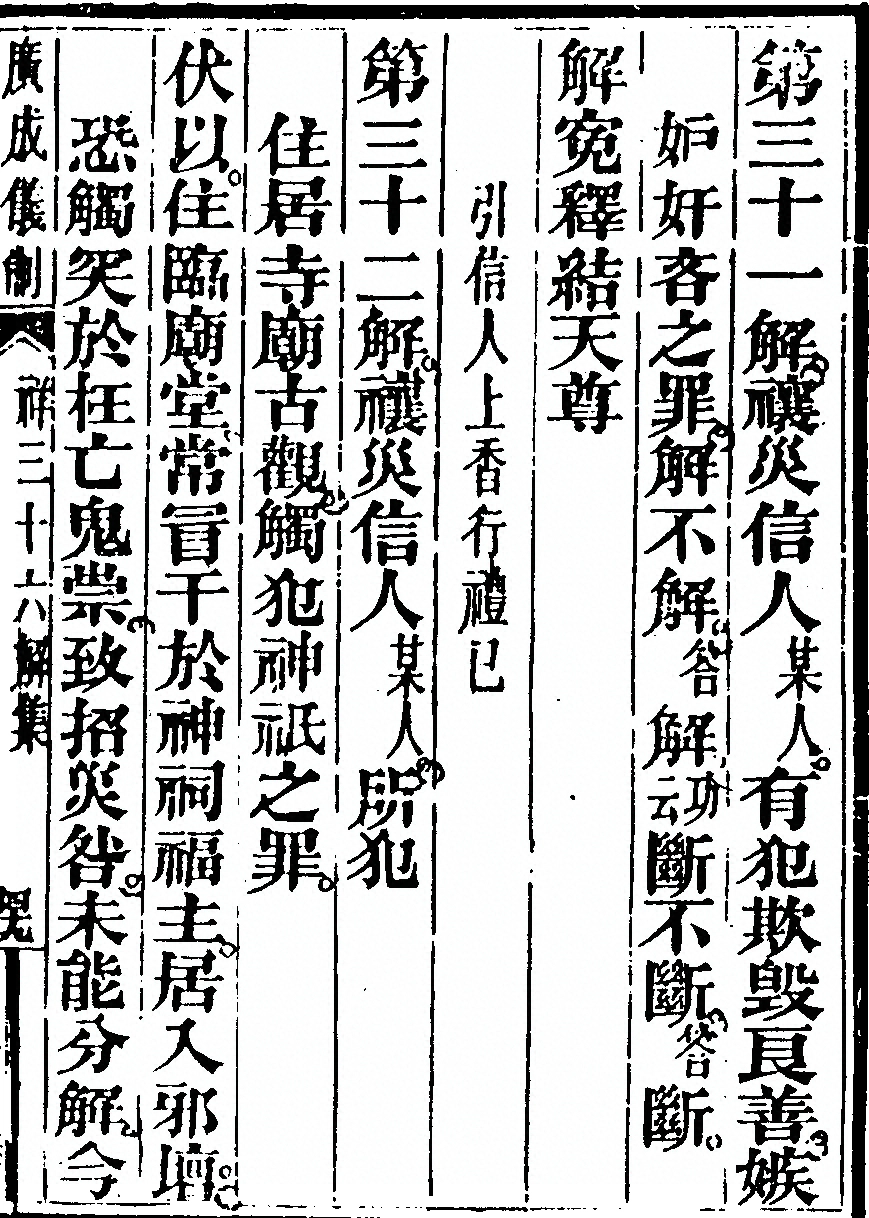 第三十一解禳災信人某人有犯欺毀良善嫉
妒奸吝之罪解不解答解功云斷不斷答斷
解寃釋結天尊
引信人上香行禮已
第三十二解禳災信人某人所犯
住居寺廟古觀觸犯神祇之罪
伏以住臨廟堂常冒干於神祠福主居入邪壇
恐觸突於枉亡鬼祟致招災咎未能分解今
廣成儀制 祥三十六解集 四九